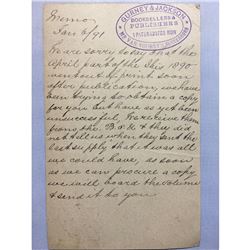 Memo
Jan 6/91
GURNEY & JACKSON
BOOKSELLERS &
PUBLISHERS
1 PATERNOSTER ROW
We are sorry to say that the
April part of the Ibis 1890
went out of print soon
after publication, we have
been trying to obtain a copy
for you but have as yet been
unsuccessful, We receive them
from the B.O.U & they did
not tell us when they sent the
last supply that it was all
we could have, as soon
as we can procure a copy
we will board the volume
& send it to you